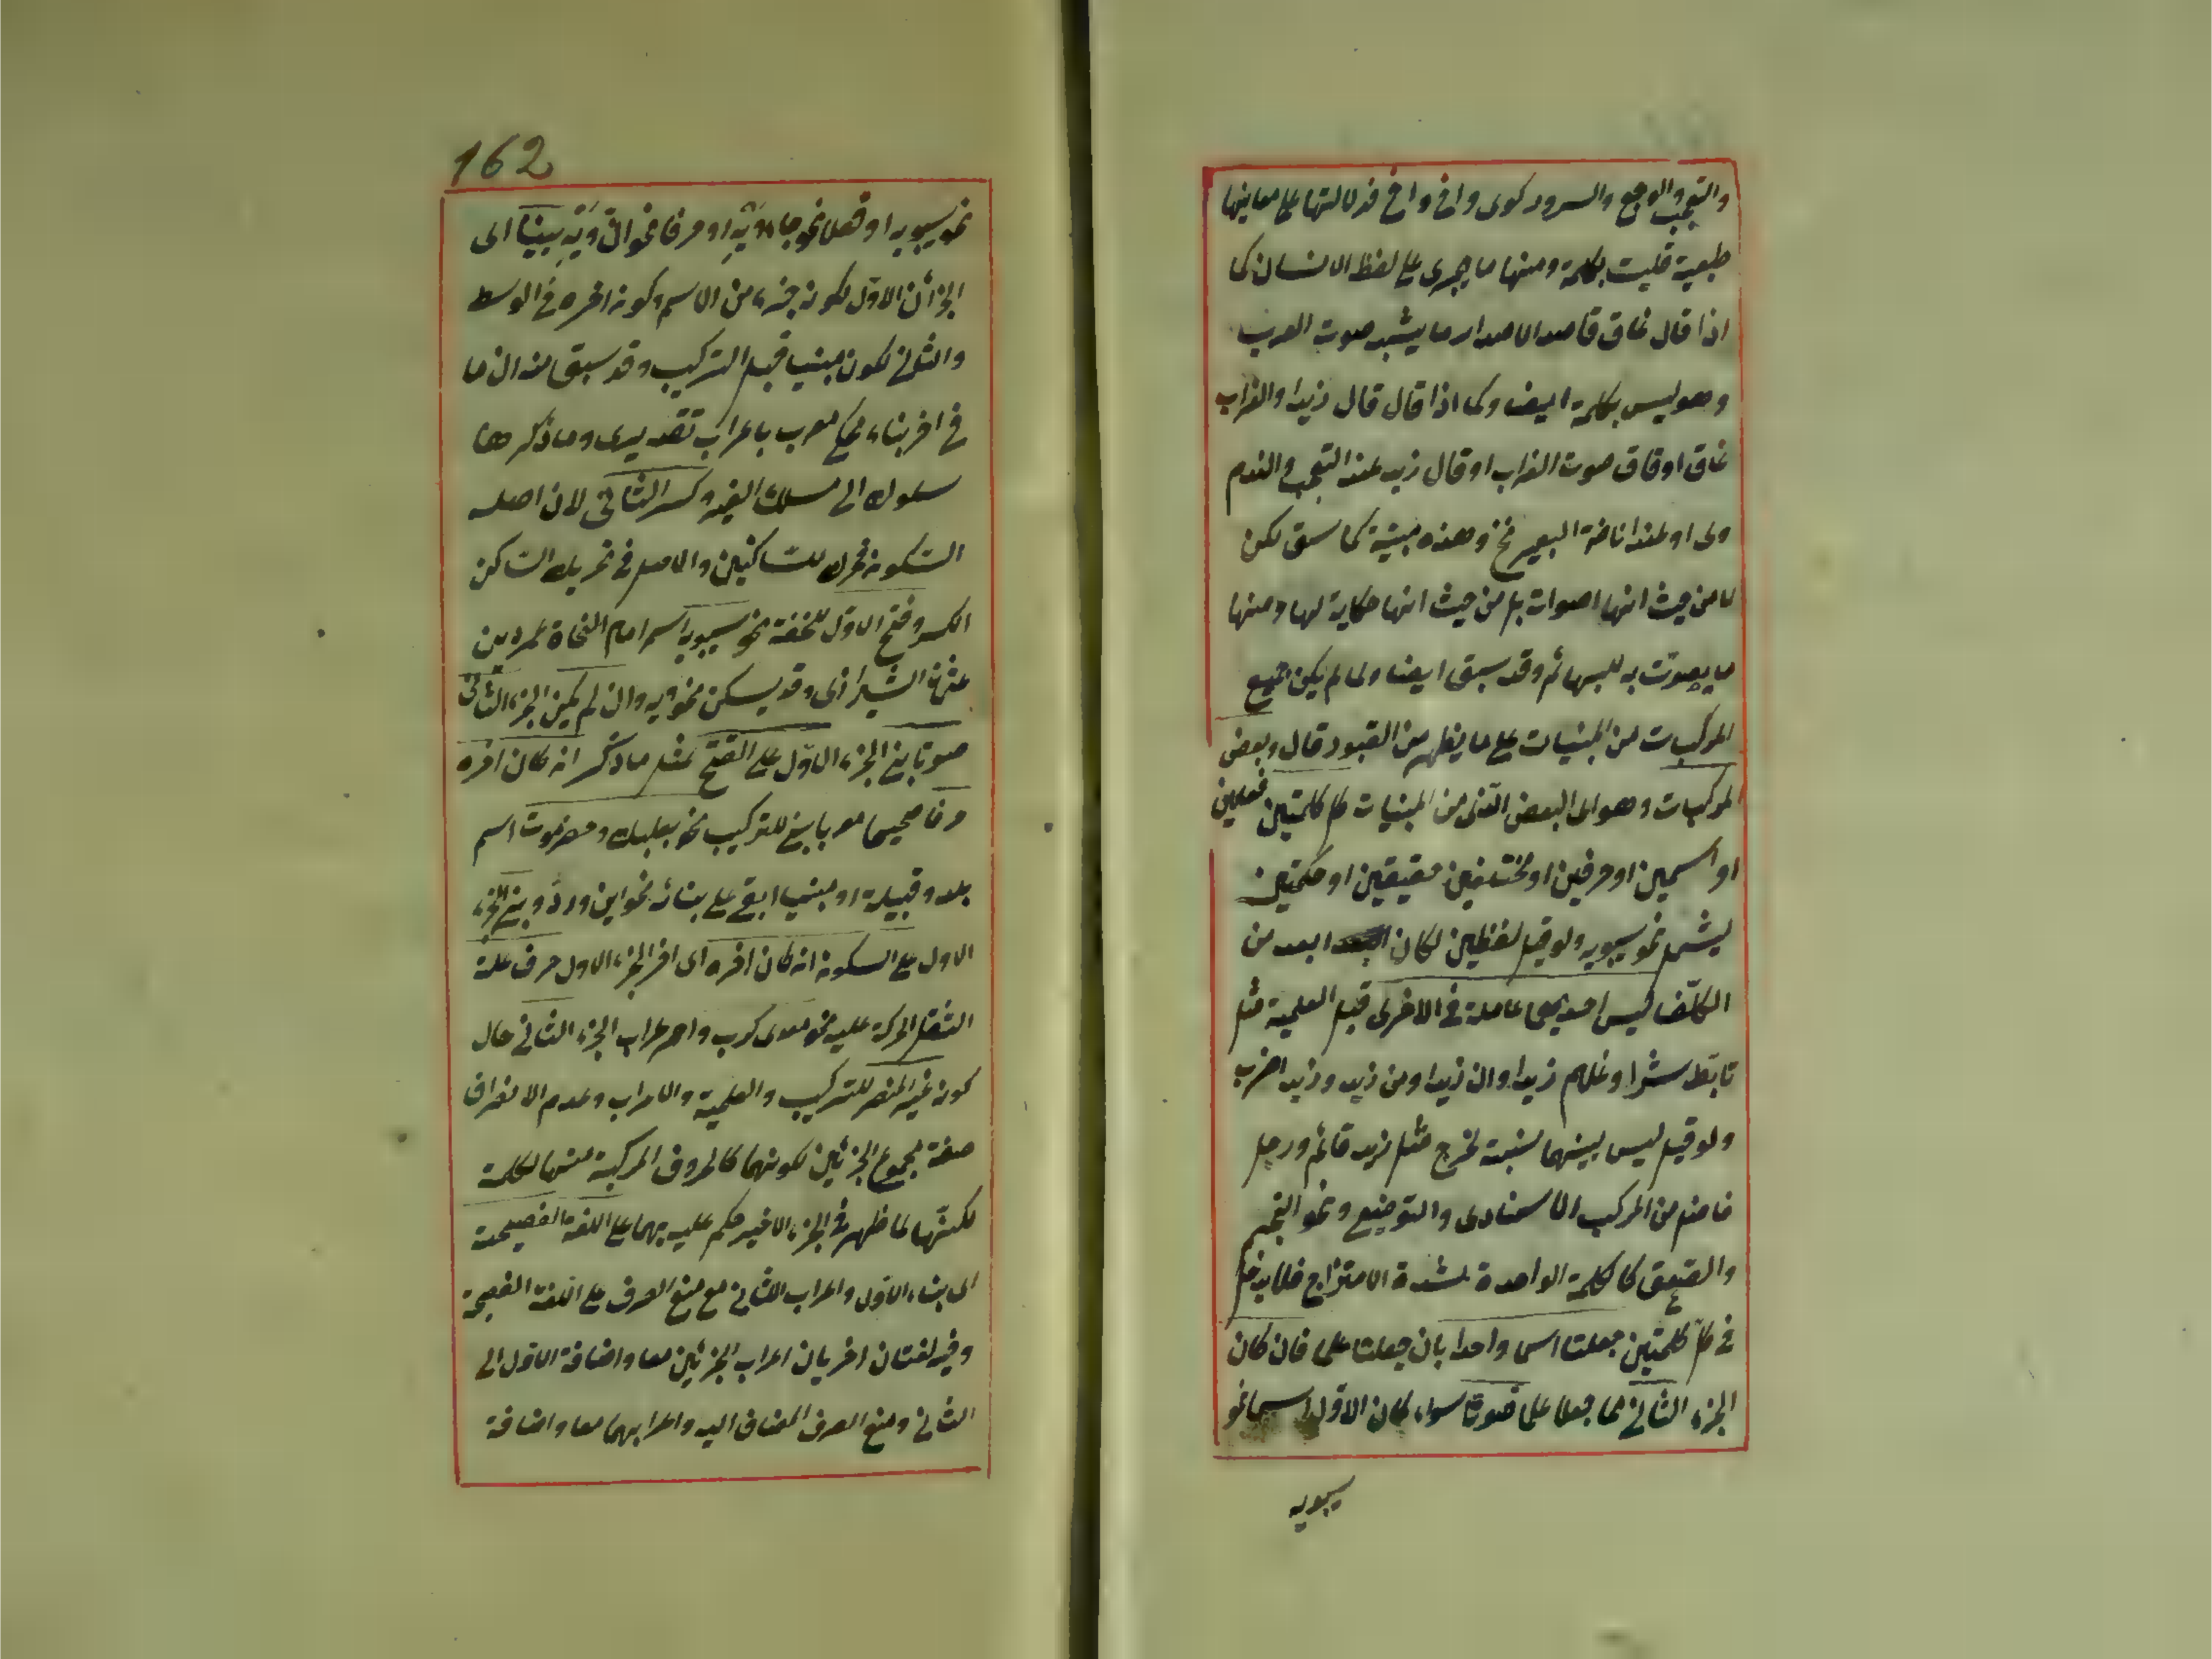 والتعجب والوجع والسرور كوى واخ واخ فدلالتها على معاينها
طبعية فليست بكلمة ومنها ما يجرى على لفظ الانسان كما
اذا قال غاق قاصدا لاصدار ما يشبه صوت الغراب
وهو ليس بكلمة ايضا وكما اذا قال قال زيدا والغراب
غاق او قاق صوت الغراب او قال زيد عند التعجب والندم
وى او عند اناخة البعير نخ وهذه مبنية كما سبق لكن
لا من حيث انها اصوات بل من حيث انها حكاية لها ومنها
ما يصوّت به للبهائم وقد سبق ايضا ولما لم يكن جميع
المركبات من المبنيات على ما يظهر من القيود قال وبعض
المركبات وهو اى البعض الذى من المبنيات كل كلمتين فعلين
او اسمين او حرفين او مختلفين حقيقين او حكمتين
ليشمل نحو سيبويه ولو قيل لفظين لكان ابعد من
التكلّف ليس احديهما عاملة فى الاخرى قبل العلمية مثل
تابّط شرا وغلام زيدا وان زيدا ومن زيد وزيد اضرب
ولو قيل ليس بينهما نسبة لخرج مثل زيد قائم ورجل
فاضل من المركب الاسنادى والتوضيع ونحو النجم
والصعق كالكلمة الواحدة لشدة الامتزاج فلا يدخل
فى كلّ كلمتين جعلتا اسما واحدا بان جعلتا علما فان كان
الجزء الثانى مما جعلا علما صوتا سواء كان الاوّل اسما نحو
سيبويه
162
نحو سيبويه او فعلا نحو جاءويه او حرفا نحو انّ ويه بنيتا اى
الجزأن الاوّل لكونه جزء من الاسم وكونه اخره فى الوسط
والثانى لكونه مبنيا قبل التركيب وقد سبق منه ان ما
فى اخر بناء محكى معرب باعراب تقديرى وما ذكر هنا
سلوك الى مسلك الغير وكسر الثانى لان اصله
السّكون فحرك للسّاكنين والاصل فى تحريك السّاكن
الكسر وفتح الاوّل للخفة نحو سيبويه اسم امام النحاة عمرو بن
عثمان الشيرازى وقد يسكن نحويه وان لم يكن الجزء الثانى
صوتا بنى الجزء الاوّل على الفتح مثل ما ذكر انه كان اخره
حرفا صحيحا معربا بنى للتركيب نحو بعلبك وحضرموت اسم
بلد وقبيلة او مبنيا ابقى على بنائه نحو اين وردّ وبنى الجزء
الاول على السكون انه كان اخره اى اخر الجزء الاول حرف علة
الثقل الحركة عليه نحو معدى كرب واعراب الجزء الثانى حال
كونه غير المنصرف للتركيب والعلمية والاعراب وعدم الانصراف
صفة لمجموع الجزئين لكونهما كالحروف المركبة منها لكلمة
لكنّهما لما ظهر فى الجزء الاخير حكم عليه بهما على اللغة الفصيحة
اى بناء الاوّل واعراب الثانى مع منع الصرف على اللغة الفصيحة
وفيه لغتان اخريان اعراب الجزئين معا واضافة الاوّل الى
الثانى ومنع الصرف المضاف اليه واعرابهما معا واضافة